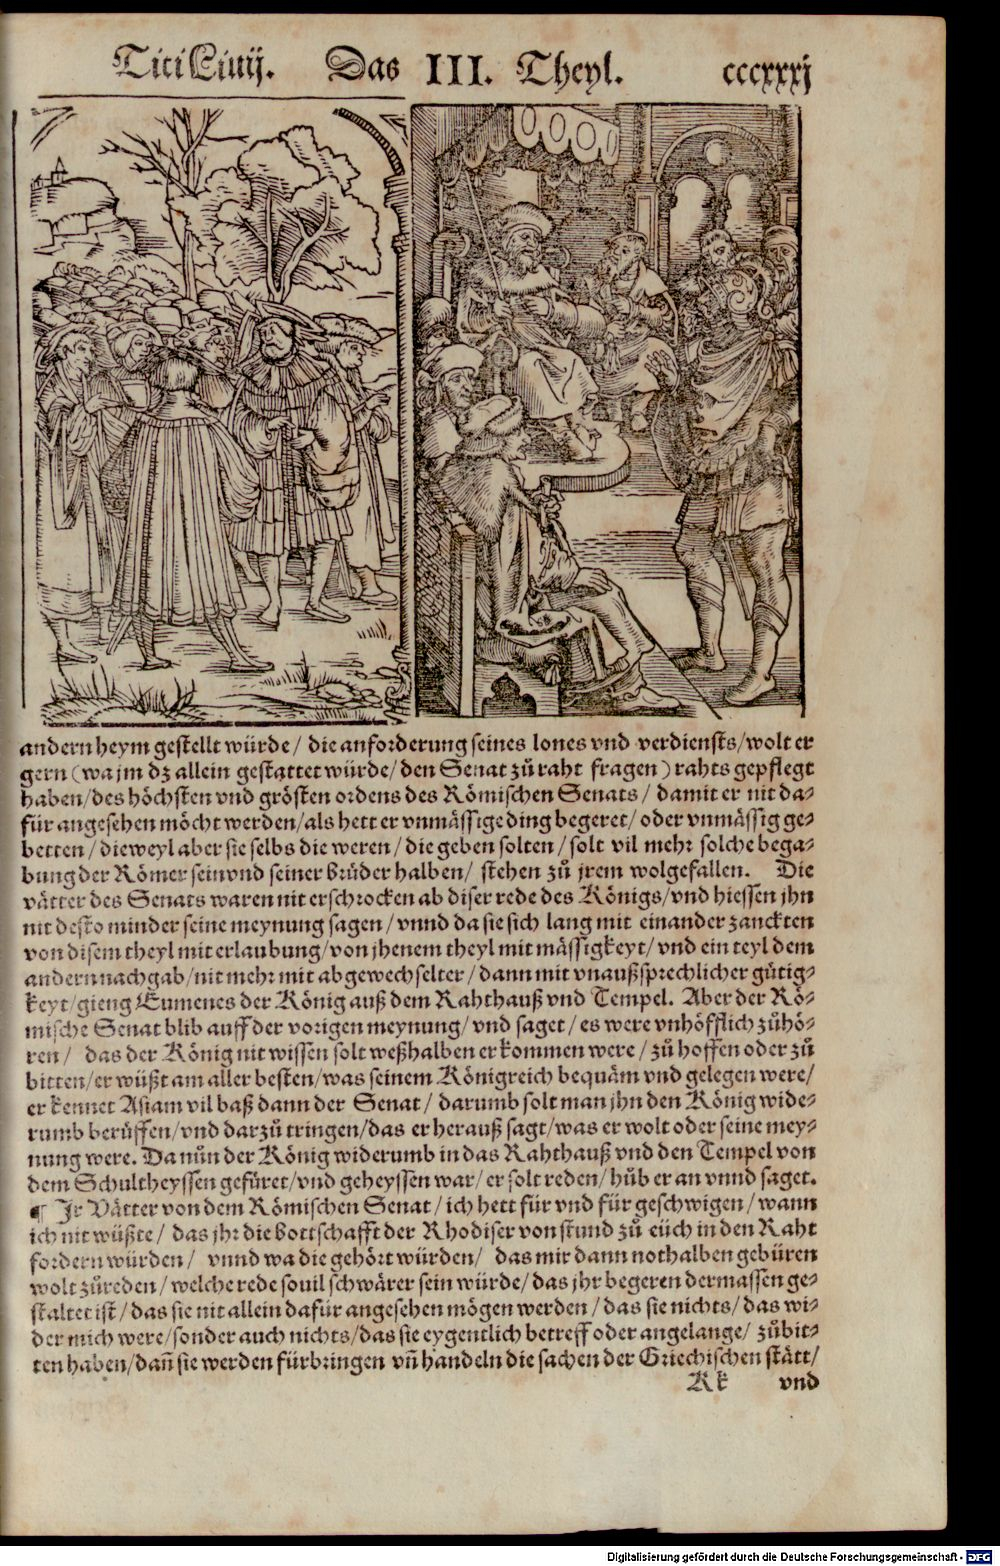 Titi Liuij. Das III. Theyl. cccxxxj
andern heym gestellt würde / die anforderung seines lones vnd verdiensts / wolt er
gern (wa jm dz allein gestattet würde / den Senat zů raht fragen) rahts gepflegt
haben / des höchsten vnd grösten ordens des Römischen Senats / damit er nit da⸗
für angesehen möcht werden / als hett er vnmässige ding begeret / oder vnmässig ge⸗
betten / dieweyl aber sie selbs die weren / die geben solten / solt vil mehr solche bega⸗
bung der Römer sein vnd seiner brüder halben / stehen zů jrem wolgefallen. Die
vätter des Senats waren nit erschrocken ab diser rede des Königs / vnd hiessen jhn
nit desto minder seine meynung sagen / vnnd da sie sich lang mit einander zanckten
von disem theyl mit erlaubung / von jhenem theyl mit mässigkeyt / vnd ein teyl dem
andern nachgab / nit mehr mit abgewechselter / dann mit vnaußsprechlicher gütig⸗
keyt / gieng Eumenes der König auß dem Rahthauß vnd Tempel. Aber der Rö⸗
mische Senat blib auff der vorigen meynung / vnd saget / es were vnhöfflich zů hö⸗
ren / das der König nit wissen solt weßhalben er kommen were / zů hoffen oder zů
bitten / er wüßt am aller besten / was seinem Königreich bequäm vnd gelegen were /
er kennet Asiam vil baß dann der Senat / darumb solt man jhn den König wide⸗
rumb berůffen / vnd darzů tringen / das er herauß sagt / was er wolt oder seine mey⸗
nung were. Da nůn der König widerumb in das Rahthauß vnd den Tempel von
dem Schultheyssen gefüret / vnd geheyssen war / er solt reden / hůb er an vnnd saget.
¶ Ir Vätter von dem Römischen Senat / ich hett für vnd für geschwigen / wann
ich nit wüßte / das jhr die bottschafft der Rhodiser von stund zů eüch in den Raht
fordern würden / vnnd wa die gehört würden / das mir dann nothalben gebüren
wolt zůreden / welche rede souil schwärer sein würde / das jhr begeren dermassen ge⸗
staltet ist / das sie nit allein dafür angesehen mögen werden / das sie nichts / das wi⸗
der mich were / sonder auch nichts / das sie eygentlich betreff oder angelange / zůbit⸗
ten haben / dañ sie werden fürbringen vñ handeln die sachen der Griechischen stätt /
Kk vnd
Digitalisierung gefördert durch die Deutsche Forschungsgemeinschaft - DFG